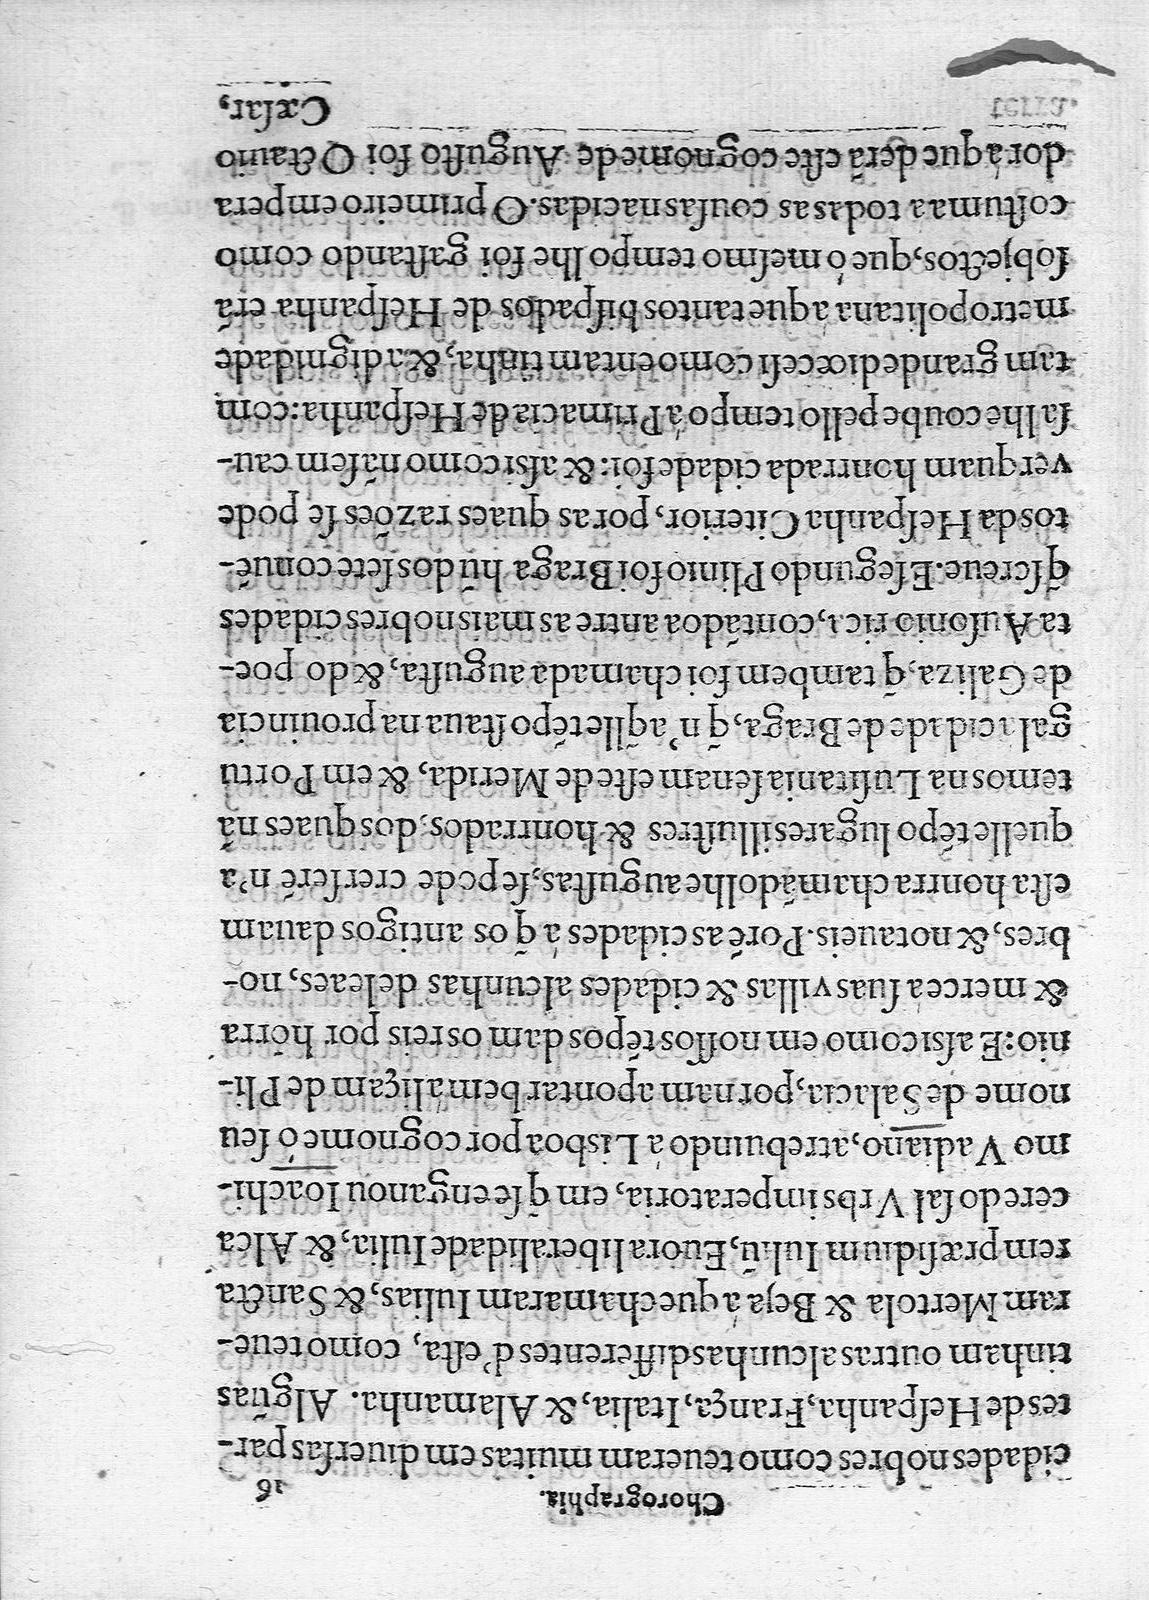 Chorographia. 16
cidades nobres como teueram muitas em diuersas par-
tes de Hespanha, França, Italia, & Alamanha. Algũas
tinham outras alcunhas differentes d'esta, como teue-
ram Mertola & Beja a que chamaram Iulias, & Sancta
rem præsidium Iuliũ, Euora liberalidade Iulia, & Alca
cere do sal Vrbs imperatoria, em q̃ se enganou Ioachi-
mo Vadiano, atrebuindo á Lisboa por cognome ó seu
nome de Salacia, por nam apontar bem a liçam de Pli-
nio: E assi como em nossos tẽpos dam os reis por hõrra
& merce a suas villas & cidades alcunhas de leaes, no-
bres, & notaueis. Porẽ as cidades a q̃ os antigos dauam
esta honrra chamádolhe augustas, se pode crer serẽ n'a
quelle tẽpo lugares illustres & honrrados, dos quaes nã
temos na Lusitania senam este de Merida, & em Portu
gal a cidade de Braga, q̃ n'aq̃lle tẽpo staua na prouincia
de Galiza, q̃ tambem foi chamada augusta, & do poe-
ta Ausonio rica, contáda antre as mais nobres cidades
q̃ screue. E segundo Plinio foi Braga hũ dos sete conuẽ-
tos da Hespanha Citerior, por as quaes razões se pode
ver quam honrrada cidade foi: & assi como nã sem cau-
sa lhe coube pello tempo á Primacia de Hespanha: com
tam grande diœcesi como entam tinha, & a dignidade
metropolitana a que tantos bispados de Hespanha erã
sobjectos, que ó mesmo tempo lhe foi gastando como
costuma a todas as cousas nacidas. O primeiro empera
dor á que derã este cognome de Augusto foi Octauio
Cæsar,
terra.